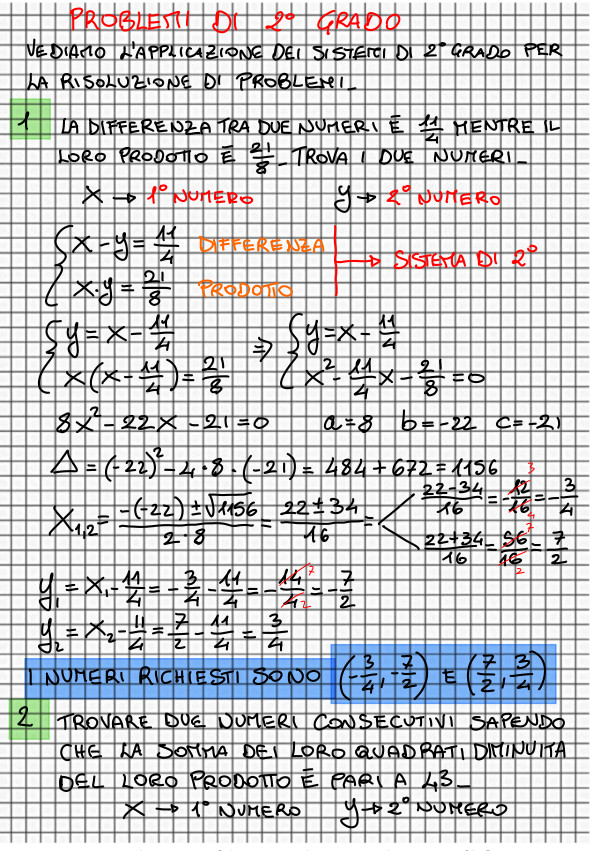 PROBLEMI DI 2° GRADO
VEDIAMO L'APPLICAZIONE DEI SISTEMI DI 2° GRADO PER
LA RISOLUZIONE DI PROBLEMI_
1 LA DIFFERENZA TRA DUE NUMERI È 11/4 MENTRE IL
LORO PRODOTTO È 21/8_ TROVA I DUE NUMERI_
X → 1° NUMERO y → 2° NUMERO
{ x - y = 11/4 DIFFERENZA
x·y = 21/8 PRODOTTO → SISTEMA DI 2°
{ y = x - 11/4 ⇒ { y = x - 11/4
x(x - 11/4) = 21/8 x² - 11/4 x - 21/8 = 0
8x² - 22x - 21 = 0 a = 8 b = -22 c = -21
Δ = (-22)² - 4·8·(-21) = 484 + 672 = 1156
X1,2 = (-(-22) ± √1156)/(2·8) = (22 ± 34)/16 = (22-34)/16 = -12/16 3 4 = -3/4
(22+34)/16 = 56/16 7 2 = 7/2
y1 = x1 - 11/4 = -3/4 - 11/4 = -14/4 7 2 = -7/2
y2 = x2 - 11/4 = 7/2 - 11/4 = 3/4
I NUMERI RICHIESTI SONO (-3/4, -7/2) E (7/2, 3/4)
2 TROVARE DUE NUMERI CONSECUTIVI SAPENDO
CHE LA SOMMA DEI LORO QUADRATI DIMINUITA
DEL LORO PRODOTTO È PARI A 43_
X → 1° NUMERO y → 2° NUMERO